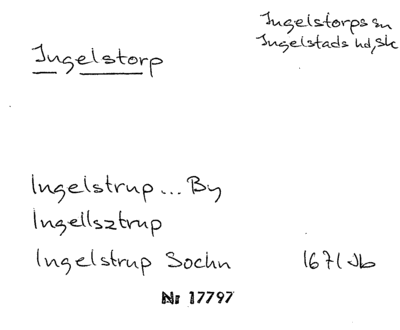 Ingelstorps sn
Ingelstads hd, Sk
Ingelstorp
Ingelstrup ... By
Ingellsztrup
Ingelstrup Sochn 1671 Jb
Nr 17797